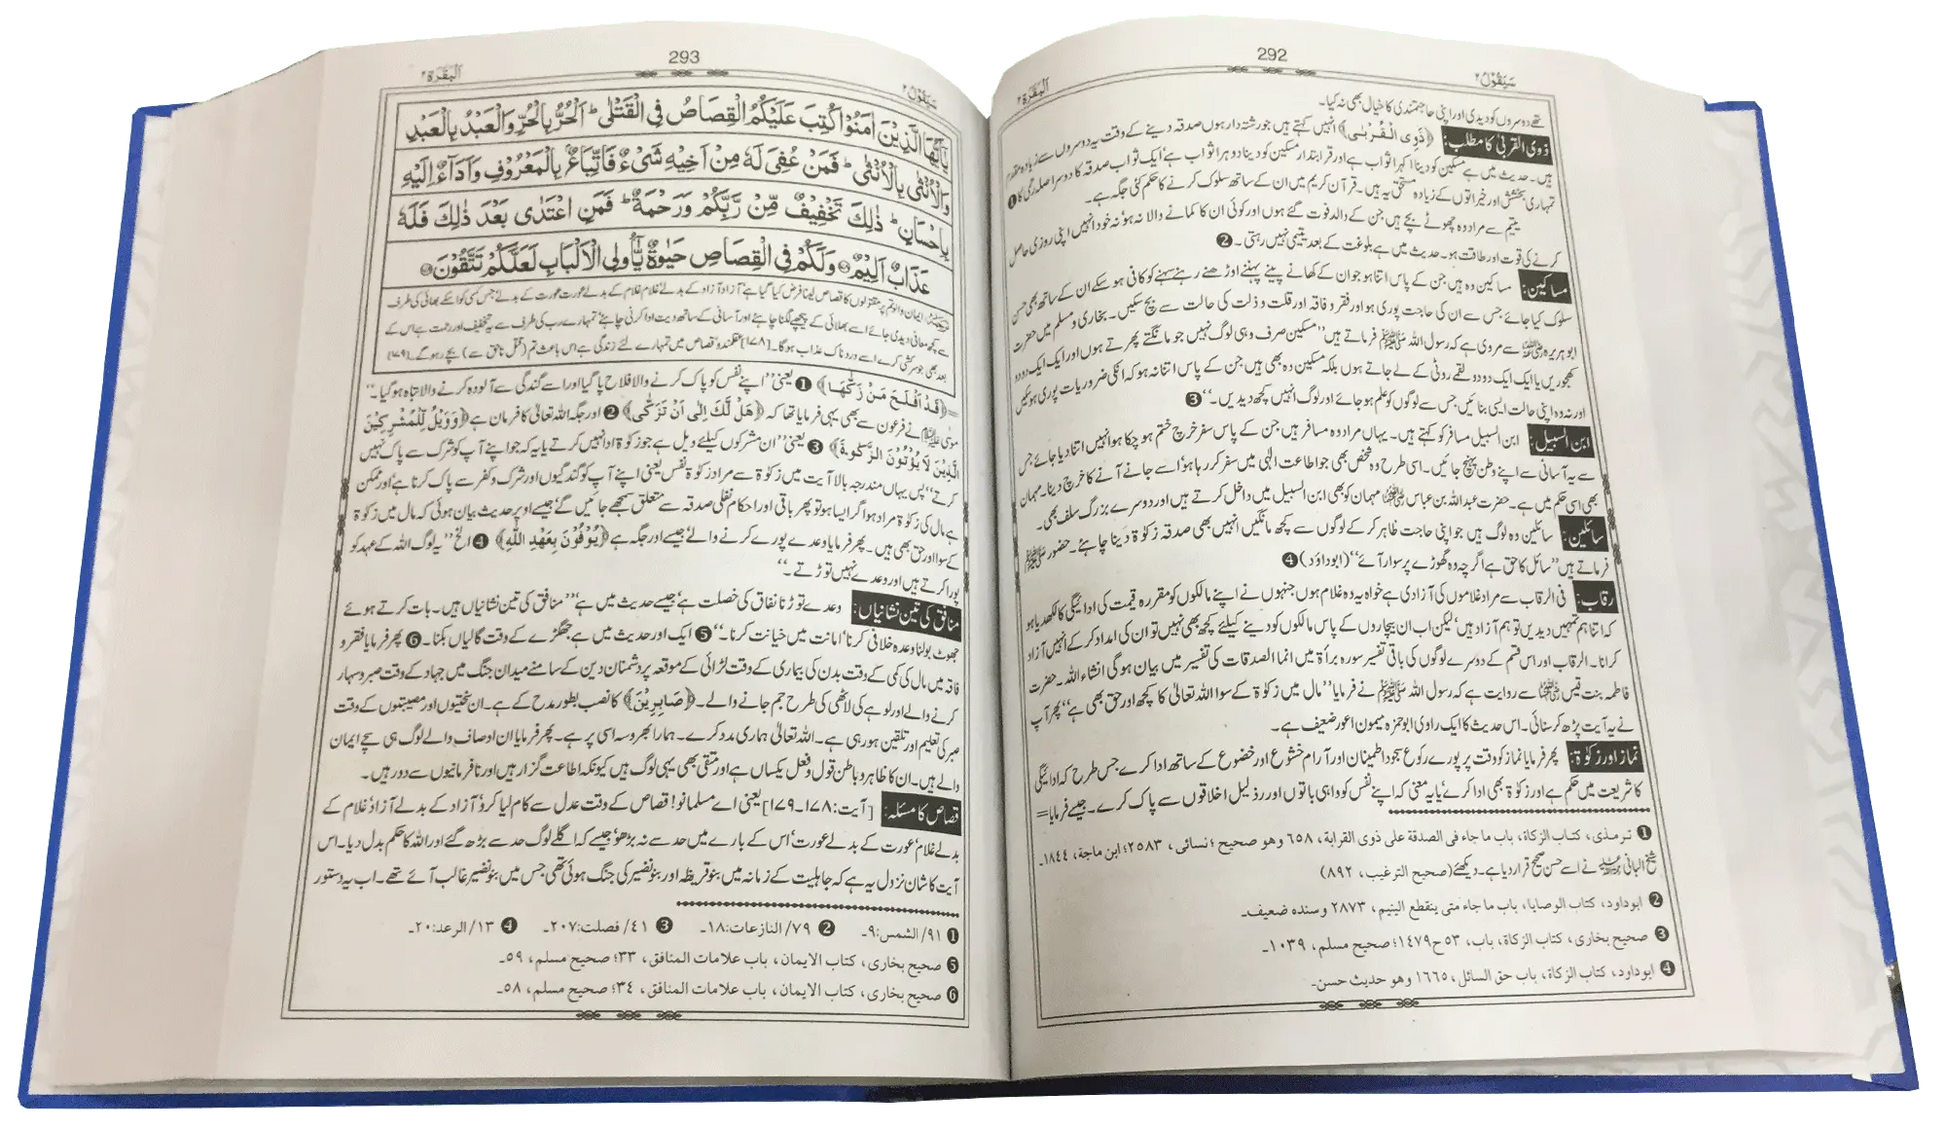 292
سَیَقُوْلُ ۲
اَلْبَقَرَة ۲
تھے دوسروں کو دیدی اور اپنی حاجتمندی کا خیال بھی نہ کیا۔
ذوی القربیٰ کا مطلب: ﴿ذَوِی الْقُرْبٰی﴾ انہیں کہتے ہیں جو رشتہ دار ہوں صدقہ دینے کے وقت یہ دوسروں سے زیادہ مقدم
ہیں۔ حدیث میں ہے مسکین کو دینا اکہرا ثواب ہے اور قرابتدار مسکین کو دینا دوہرا ثواب ہے، ایک ثواب صدقہ کا دوسرا صلہ رحمی کا ❶
تمہاری بخشش اور خیراتوں کے زیادہ مستحق یہ ہیں۔ قرآن کریم میں ان کے ساتھ سلوک کرنے کا حکم کئی جگہ ہے۔
یتیم سے مراد وہ چھوٹے بچے ہیں جن کے والد فوت گئے ہوں اور کوئی ان کا کمانے والا نہ ہو نہ خود انہیں اپنی روزی حاصل
کرنے کی قوت اور طاقت ہو۔ حدیث میں ہے بلوغت کے بعد یتیمی نہیں رہتی۔ ❷
مساکین: مساکین وہ ہیں جن کے پاس اتنا ہو جو ان کے کھانے پینے پہننے اوڑھنے رہنے سہنے کو کافی ہو سکے ان کے ساتھ بھی حسن
سلوک کیا جائے جس سے ان کی حاجت پوری ہو اور فقر و فاقہ اور قلت و ذلت کی حالت سے بچ سکیں۔ بخاری و مسلم میں حضرت
ابو ہریرہ رضی اللہ عنہ سے مروی ہے کہ رسول اللہ ﷺ فرماتے ہیں ’’مسکین صرف وہی لوگ نہیں جو مانگتے پھرتے ہوں اور ایک ایک دو دو
کھجوریں یا ایک ایک دو دو لقمے روٹی کے لے جاتے ہوں بلکہ مسکین وہ بھی ہیں جن کے پاس اتنا نہ ہو کہ انکی ضروریات پوری ہو سکیں
اور نہ وہ اپنی حالت ایسی بنائیں جس سے لوگوں کو علم ہو جائے اور لوگ انہیں کچھ دیدیں۔‘‘ ❸
ابن السبیل: ابن السبیل مسافر کو کہتے ہیں۔ یہاں مراد وہ مسافر ہیں جن کے پاس سفر خرچ ختم ہو چکا ہو انہیں اتنا دیا جائے جس
سے یہ آسانی سے اپنے وطن پہنچ جائیں۔ اسی طرح وہ شخص بھی جو اطاعت الٰہی میں سفر کر رہا ہو، اسے جانے آنے کا خرچ دینا۔ مہمان
بھی اسی حکم میں ہے۔ حضرت عبداللہ بن عباس رضی اللہ عنہما مہمان کو بھی ابن السبیل میں داخل کرتے ہیں اور دوسرے بزرگ سلف بھی۔
سائلین: سائلین وہ لوگ ہیں جو اپنی حاجت ظاہر کر کے لوگوں سے کچھ مانگیں انہیں بھی صدقہ زکوٰۃ دینا چاہئے۔ حضور ﷺ
فرماتے ہیں ’’سائل کا حق ہے اگرچہ وہ گھوڑے پر سوار آئے‘‘ (ابوداؤد) ❹
رقاب: فی الرقاب سے مراد غلاموں کی آزادی ہے خواہ یہ وہ غلام ہوں جنہوں نے اپنے مالکوں کو مقررہ قیمت کی ادائیگی کا لکھ دیا ہو
کہ اتنا ہم تمہیں دیدیں تو ہم آزاد ہیں، لیکن اب ان بیچاروں کے پاس مالکوں کو دینے کیلئے کچھ بھی نہیں تو ان کی امداد کر کے انہیں آزاد
کرانا۔ الرقاب اور اس قسم کے دوسرے لوگوں کی باقی تفسیر سورہ برأۃ میں انما الصدقات کی تفسیر میں بیان ہو گی انشاء اللہ۔ حضرت
فاطمہ بنت قیس رضی اللہ عنہا سے روایت ہے کہ رسول اللہ ﷺ نے فرمایا ’’مال میں زکوٰۃ کے سوا اللہ تعالیٰ کا کچھ اور حق بھی ہے‘‘ پھر آپ
نے یہ آیت پڑھ کر سنائی۔ اس حدیث کا ایک راوی ابو حمزہ میمون اعور ضعیف ہے۔
نماز اور زکوٰۃ: پھر فرمایا نماز کو وقت پر پورے رکوع سجود اطمینان اور آرام خشوع اور خضوع کے ساتھ ادا کرے جس طرح کہ ادائیگی
کا شریعت میں حکم ہے اور زکوٰۃ بھی ادا کرے یا یہ معنی کہ اپنے نفس کو واہی باتوں اور رذیل اخلاقوں سے پاک کرے۔ جیسے فرمایا =
❶ ترمذی، کتاب الزکاة، باب ما جاء فی الصدقة علی ذوی القرابة، ۶۵۸ وھو صحیح؛ نسائی، ۲۵۸۳؛ ابن ماجة، ۱۸۴۴۔
شیخ البانی رحمہ اللہ نے اسے حسن صحیح قرار دیا ہے۔ دیکھئے (صحیح الترغیب، ۸۹۲)
❷ ابوداود، کتاب الوصایا، باب ما جاء متی ینقطع الیتیم، ۲۸۷۳ وسندہ ضعیف۔
❸ صحیح بخاری، کتاب الزکاة، باب، ۵۳ ح۱۴۷۹؛ صحیح مسلم، ۱۰۳۹۔
❹ ابوداود، کتاب الزکاة، باب حق السائل، ۱۶۶۵ وھو حدیث حسن۔
293
سَیَقُوْلُ ۲
اَلْبَقَرَة ۲
یٰۤاَیُّهَا الَّذِیْنَ اٰمَنُوْا كُتِبَ عَلَیْكُمُ الْقِصَاصُ فِی الْقَتْلٰی ؕ اَلْحُرُّ بِالْحُرِّ وَالْعَبْدُ بِالْعَبْدِ
وَالْاُنْثٰی بِالْاُنْثٰی ؕ فَمَنْ عُفِیَ لَهٗ مِنْ اَخِیْهِ شَیْءٌ فَاتِّبَاعٌۢ بِالْمَعْرُوْفِ وَاَدَآءٌ اِلَیْهِ
بِاِحْسَانٍ ؕ ذٰلِكَ تَخْفِیْفٌ مِّنْ رَّبِّكُمْ وَرَحْمَةٌ ؕ فَمَنِ اعْتَدٰی بَعْدَ ذٰلِكَ فَلَهٗ
عَذَابٌ اَلِیْمٌ وَلَكُمْ فِی الْقِصَاصِ حَیٰوةٌ یّٰۤاُولِی الْاَلْبَابِ لَعَلَّكُمْ تَتَّقُوْنَ
ایمان والو تم پر مقتولوں کا قصاص لینا فرض کیا گیا ہے، آزاد آزاد کے بدلے، غلام غلام کے بدلے، عورت عورت کے بدلے، جس کسی کو اسکے بھائی کی طرف
سے کچھ معافی دیدی جائے اسے بھلائی کے پیچھے لگنا چاہئے اور آسانی کے ساتھ دیت ادا کرنی چاہئے، تمہارے رب کی طرف سے یہ تخفیف اور رحمت ہے اس کے
بعد بھی جو سرکشی کرے اسے دردناک عذاب ہو گا۔ [۱۷۸] عقلمندو قصاص میں تمہارے لئے زندگی ہے اس باعث تم (قتل ناحق سے) بچے رہو گے۔ [۱۷۹]
= ﴿قَدْ اَفْلَحَ مَنْ زَكّٰهَا﴾ ❶ یعنی ’’اپنے نفس کو پاک کرنے والا فلاح پا گیا اور اسے گندگی سے آلودہ کرنے والا تباہ ہو گیا۔‘‘
موسیٰ علیہ السلام نے فرعون سے بھی یہی فرمایا تھا کہ ﴿هَلْ لَّكَ اِلٰی اَنْ تَزَكّٰی﴾ ❷ اور جگہ اللہ تعالیٰ کا فرمان ہے ﴿وَوَیْلٌ لِّلْمُشْرِكِیْنَ
الَّذِیْنَ لَا یُؤْتُوْنَ الزَّكٰوةَ﴾ ❸ یعنی ’’ان مشرکوں کیلئے ویل ہے جو زکوٰۃ ادا نہیں کرتے یا یہ کہ جو اپنے آپ کو شرک سے پاک نہیں
کرتے‘‘ پس یہاں مندرجہ بالا آیت میں زکوٰۃ سے مراد زکوٰۃ نفس یعنی اپنے آپ کو گندگیوں اور شرک و کفر سے پاک کرنا ہے، اور ممکن
ہے مال کی زکوٰۃ مراد ہو اگر ایسا ہو تو پھر باقی اور احکام نفلی صدقہ سے متعلق سمجھے جائیں گے، جیسے اوپر حدیث بیان ہوئی کہ مال میں زکوٰۃ
کے سوا اور حق بھی ہیں۔ پھر فرمایا وعدے پورے کرنے والے، جیسے اور جگہ ہے ﴿یُوْفُوْنَ بِعَهْدِ اللّٰهِ﴾ ❹ الخ ’’یہ لوگ اللہ کے عہد کو
پورا کرتے ہیں اور وعدے نہیں توڑتے۔‘‘
منافق کی تین نشانیاں: وعدے توڑنا نفاق کی خصلت ہے، جیسے حدیث میں ہے، ’’منافق کی تین نشانیاں ہیں۔ بات کرتے ہوئے
جھوٹ بولنا وعدہ خلافی کرنا، امانت میں خیانت کرنا۔‘‘ ❺ ایک اور حدیث میں ہے جھگڑے کے وقت گالیاں بکنا۔ ❻ پھر فرمایا فقر و
فاقہ میں مال کی کمی کے وقت بدن کی بیماری کے وقت لڑائی کے موقعہ پر دشمنان دین کے سامنے میدان جنگ میں جہاد کے وقت صبر و سہار
کرنے والے اور لوہے کی لاٹھی کی طرح جم جانے والے۔ ﴿صَابِرِیْنَ﴾ کا نصب بطور مدح کے ہے۔ ان سختیوں اور مصیبتوں کے وقت
صبر کی تعلیم اور تلقین ہو رہی ہے۔ اللہ تعالیٰ ہماری مدد کرے۔ ہمارا بھروسہ اسی پر ہے۔ پھر فرمایا ان اوصاف والے لوگ ہی سچے ایمان
والے ہیں۔ ان کا ظاہر و باطن قول و فعل یکساں ہے اور متقی بھی یہی لوگ ہیں کیونکہ اطاعت گزار ہیں اور نافرمانیوں سے دور ہیں۔
قصاص کا مسئلہ: [آیت: ۱۷۸۔۱۷۹] یعنی اے مسلمانو! قصاص کے وقت عدل سے کام لیا کرو، آزاد کے بدلے آزاد، غلام کے
بدلے غلام، عورت کے بدلے عورت، اس کے بارے میں حد سے نہ بڑھو، جیسے کہ اگلے لوگ حد سے بڑھ گئے اور اللہ کا حکم بدل دیا۔ اس
آیت کا شان نزول یہ ہے کہ جاہلیت کے زمانہ میں بنو قریظہ اور بنو نضیر کی جنگ ہوئی تھی جس میں بنو نضیر غالب آئے تھے۔ اب یہ دستور
❶ ۹۱/ الشمس:۹۔ ❷ ۷۹/ النازعات:۱۸۔ ❸ ۴۱/ فصلت:۲۰۷۔ ❹ ۱۳/ الرعد:۲۰۔
❺ صحیح بخاری، کتاب الایمان، باب علامات المنافق، ۳۳؛ صحیح مسلم، ۵۹۔
❻ صحیح بخاری، کتاب الایمان، باب علامات المنافق، ۳۴؛ صحیح مسلم، ۵۸۔